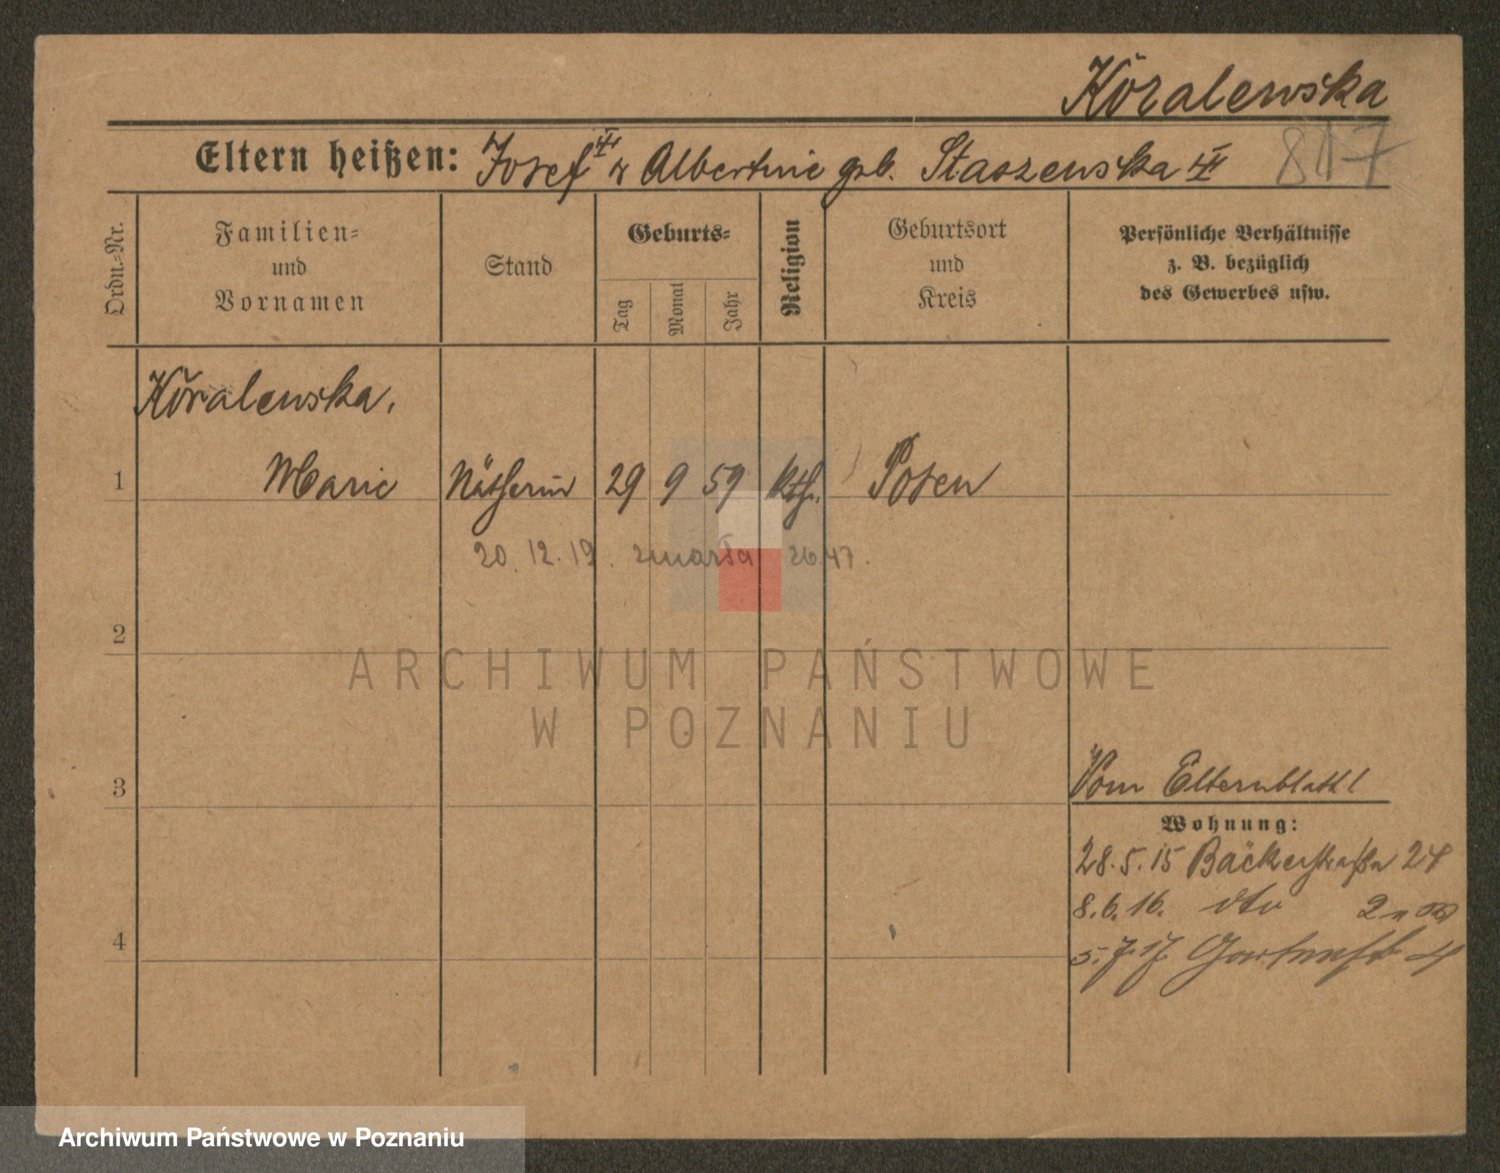 Koralewska
Eltern heißen: Josef ‡ u Albertine geb. Staszewska ‡
817
Ordn.-Nr.
Familien-
und
Vornamen
Stand
Geburts-
Tag
Monat
Jahr
Religion
Geburtsort
und
Kreis
Persönliche Verhältnisse
z. B. bezüglich
des Gewerbes usw.
Koralewska,
1 Marie Nätherin 29 9 59 kth. Posen
20.12.19. zmarła 2647.
2
ARCHIWUM PAŃSTWOWE
W POZNANIU
3
Vom Elternblatt!
Wohnung:
28.5.15 Bäckerstraße 24
8.6.16. dto
4
5.7.17 Gartenstr 4
Archiwum Państwowe w Poznaniu